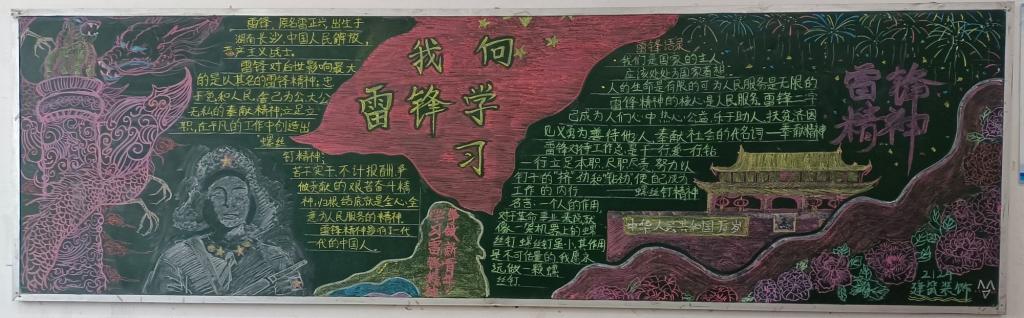 雷锋,原名雷正兴,出生于
湖南长沙,中国人民解放,
共产主义战士。
雷锋对后世影响最大
的是以其名的雷锋精神:忠
于党和人民,舍己为公,大公
无私的奉献精神;立足立
职,在平凡的工作中创造出
"螺丝
钉精神;
苦干实干,不计报酬,争
做贡献的艰苦奋斗精
神,归根结底就是全心全
意为人民服务的精神
雷锋精神影响了一代
一代的中国人。
我 向
雷 锋 学
习
争做新青年
学习雷锋精神
雷锋语录
·我们是国家的主人
应该处处为国家着想
·人的生命是有限的可为人民服务是无限的
雷锋精神的核心是人民服务,雷锋一字
已成为人们心中热心公益,乐于助人,扶贫济困
见义勇为善待他人,奉献社会的代名词—奉献精神
雷锋对待工作总是干一行爱一行钻
一行立足本职,尽职尽责,努力以
钉子的"挤"劲和"钻劲"使自己成为
工作的内行 ———螺丝钉精神
名言:一个人的作用
对于革命事业来说就
像一架机器上的螺
丝钉,螺丝钉虽小,其作用
是不可估量的,我愿永
远做一颗螺
丝钉
雷锋
精神
中华人民共和国万岁
2124
建筑装饰